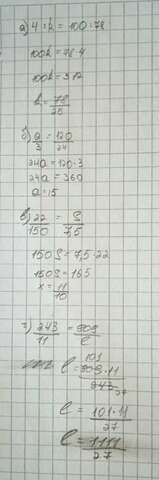 а) 4 : k = 100 : 78
100k = 78 · 4
100k = 312
k = 78/25
б) a/3 = 120/24
24a = 120 · 3
24a = 360
a = 15
в) 22/150 = S/7,5
150S = 7,5 · 22
150S = 165
x = 11/10
г) 243/11 = 909/l
l = 909 · 11/243 101 27
l = 101 · 11/27
l = 1111/27